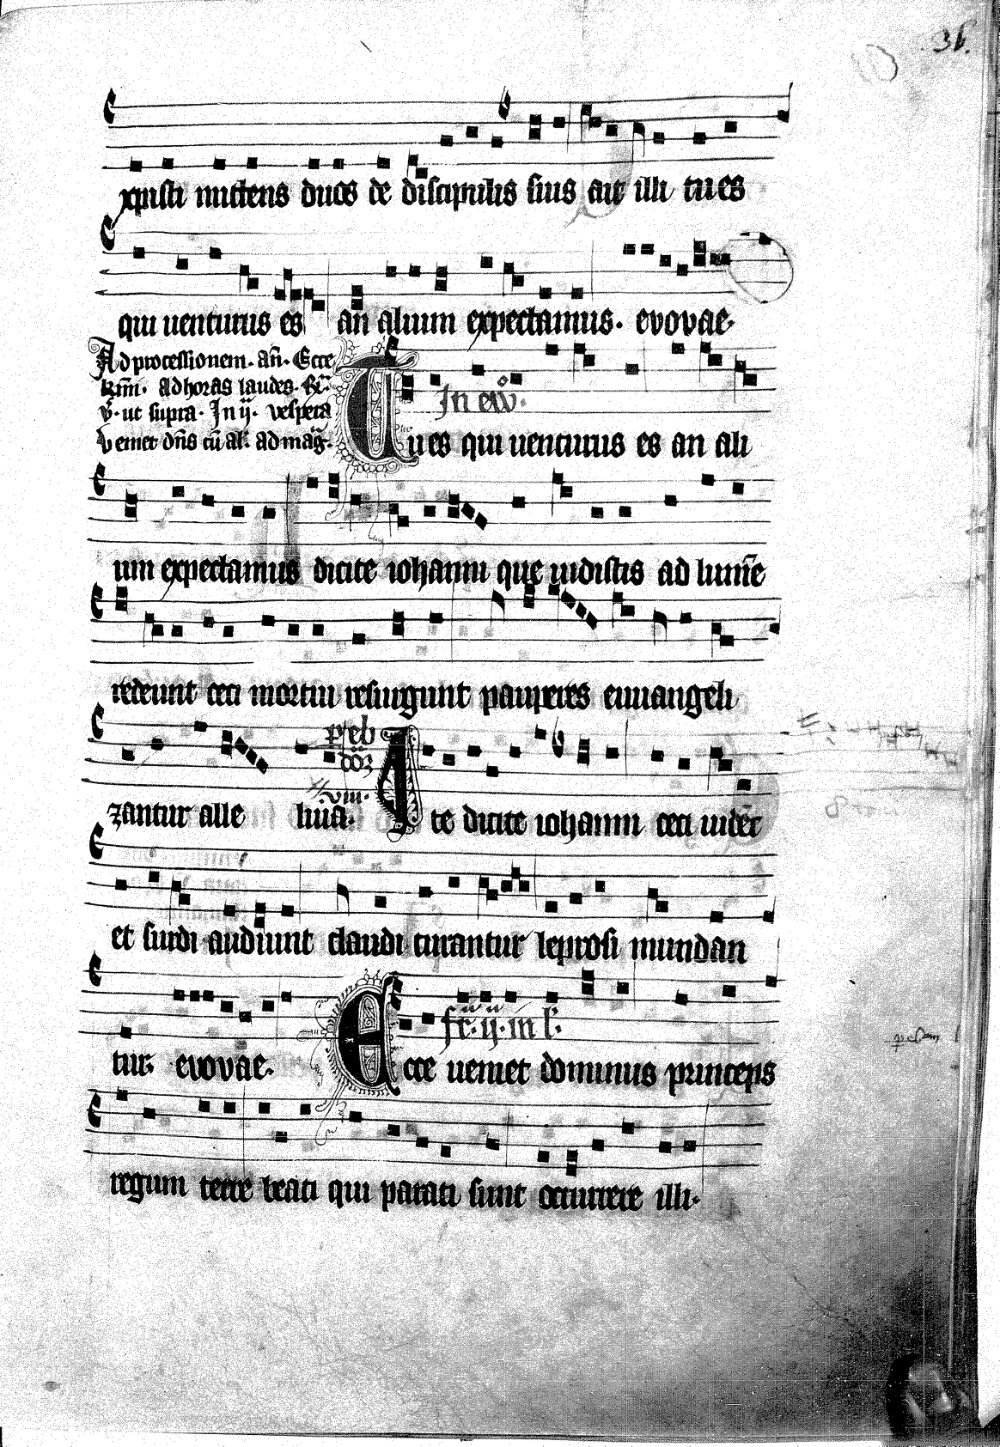 36.
xpisti mittens duos de discipulis suis ait illi tu es
qui uenturus es an alium expectamus. evovae.
Ad processionem. an̄. Ecce
In ew̄.
ad horas laudes.
ut supra. In ij. vespera
veniet dn̄s cū al. ad maḡ.
Tu es qui uenturus es an ali
um expectamus dicite iohanni que uidistis ad lumē
redeunt ceci mortui resurgunt pauperes euuangeli
zantur alle luia.
viii.
Ite dicite iohanni ceci uidēt
et surdi audiunt claudi curantur leprosi mundan
tur. evovae.
fr. ij. in l.
Ecce ueniet dominus princeps
regum terre beati qui parati sunt occurrere illi.